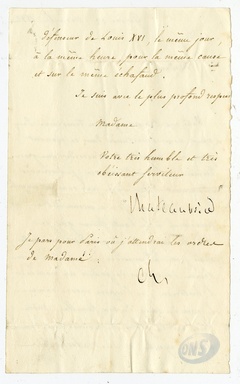 défenseur de Louis XVI le même jour
à la même heure pour la même cause
et sur le même échafaud.
Je suis avec le plus profond respect
Madame
Votre très humble et très
obéissant serviteur
Chateaubriand
Je pars pour Paris où j'attendrai les ordres
de Madame.
Ch.